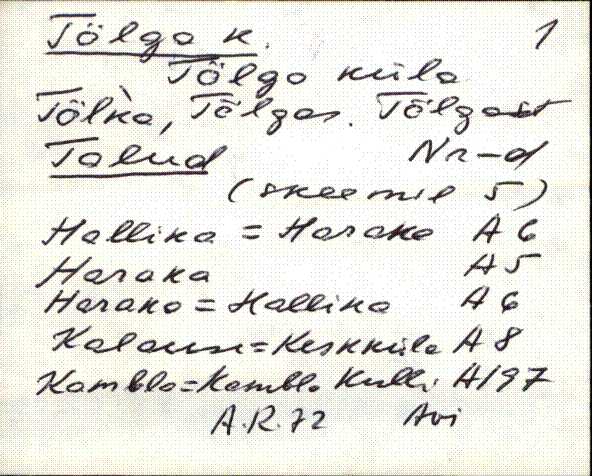 Tõlga k. 1
Tõlga küla
Tõlka, Tõlgas. Tõlgast
Talud Nr-d
(skeemil 5)
Hallika = Haraka A 6
Haraka A 5
Haraka = Hallika A 6
Kalause = Keskküla A 8
Kambla = Kambla Kulli A197
A.R.72 Avi